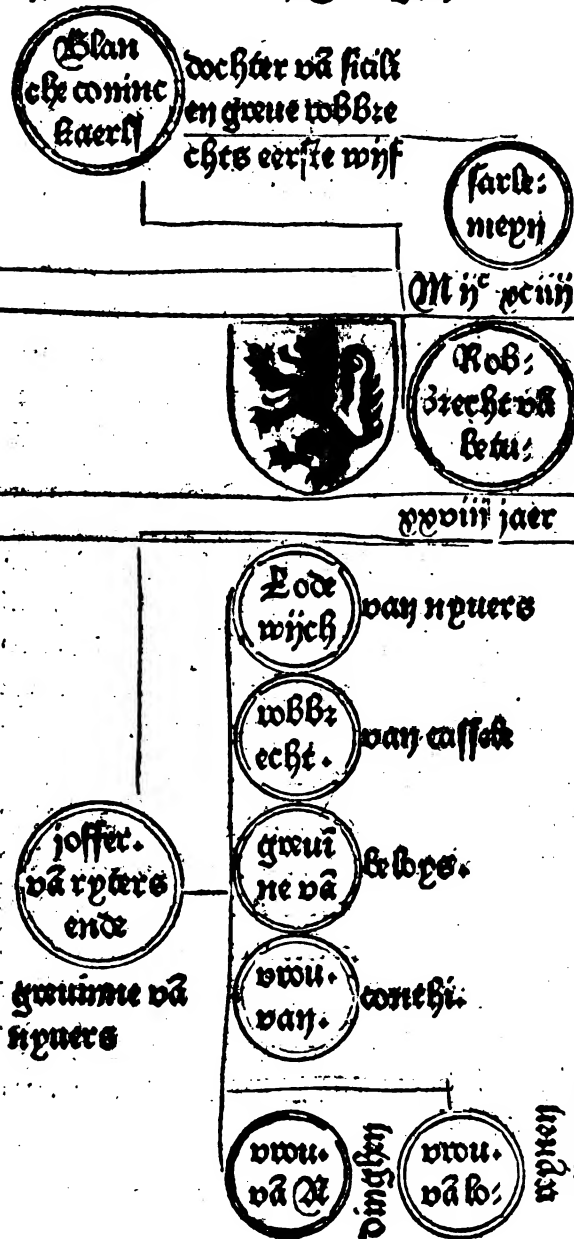 Blan
che coninc
kaerls
dochter vā sicili
en graue robbre
chts eerste wijf
sarle:
meyn
M ijᶜ xciiij
Rob:
brecht vā
betu:
xxviij jaer
Lode
wijch
van nyuers
robbr
echt.
van cassele
graui
ne vā
beloys.
vrou.
van.
conchi.
joffer.
vā ryters
ende
grauinne vā
nyuers
vrou.
vā A
dinghen
vrou.
vā lo: